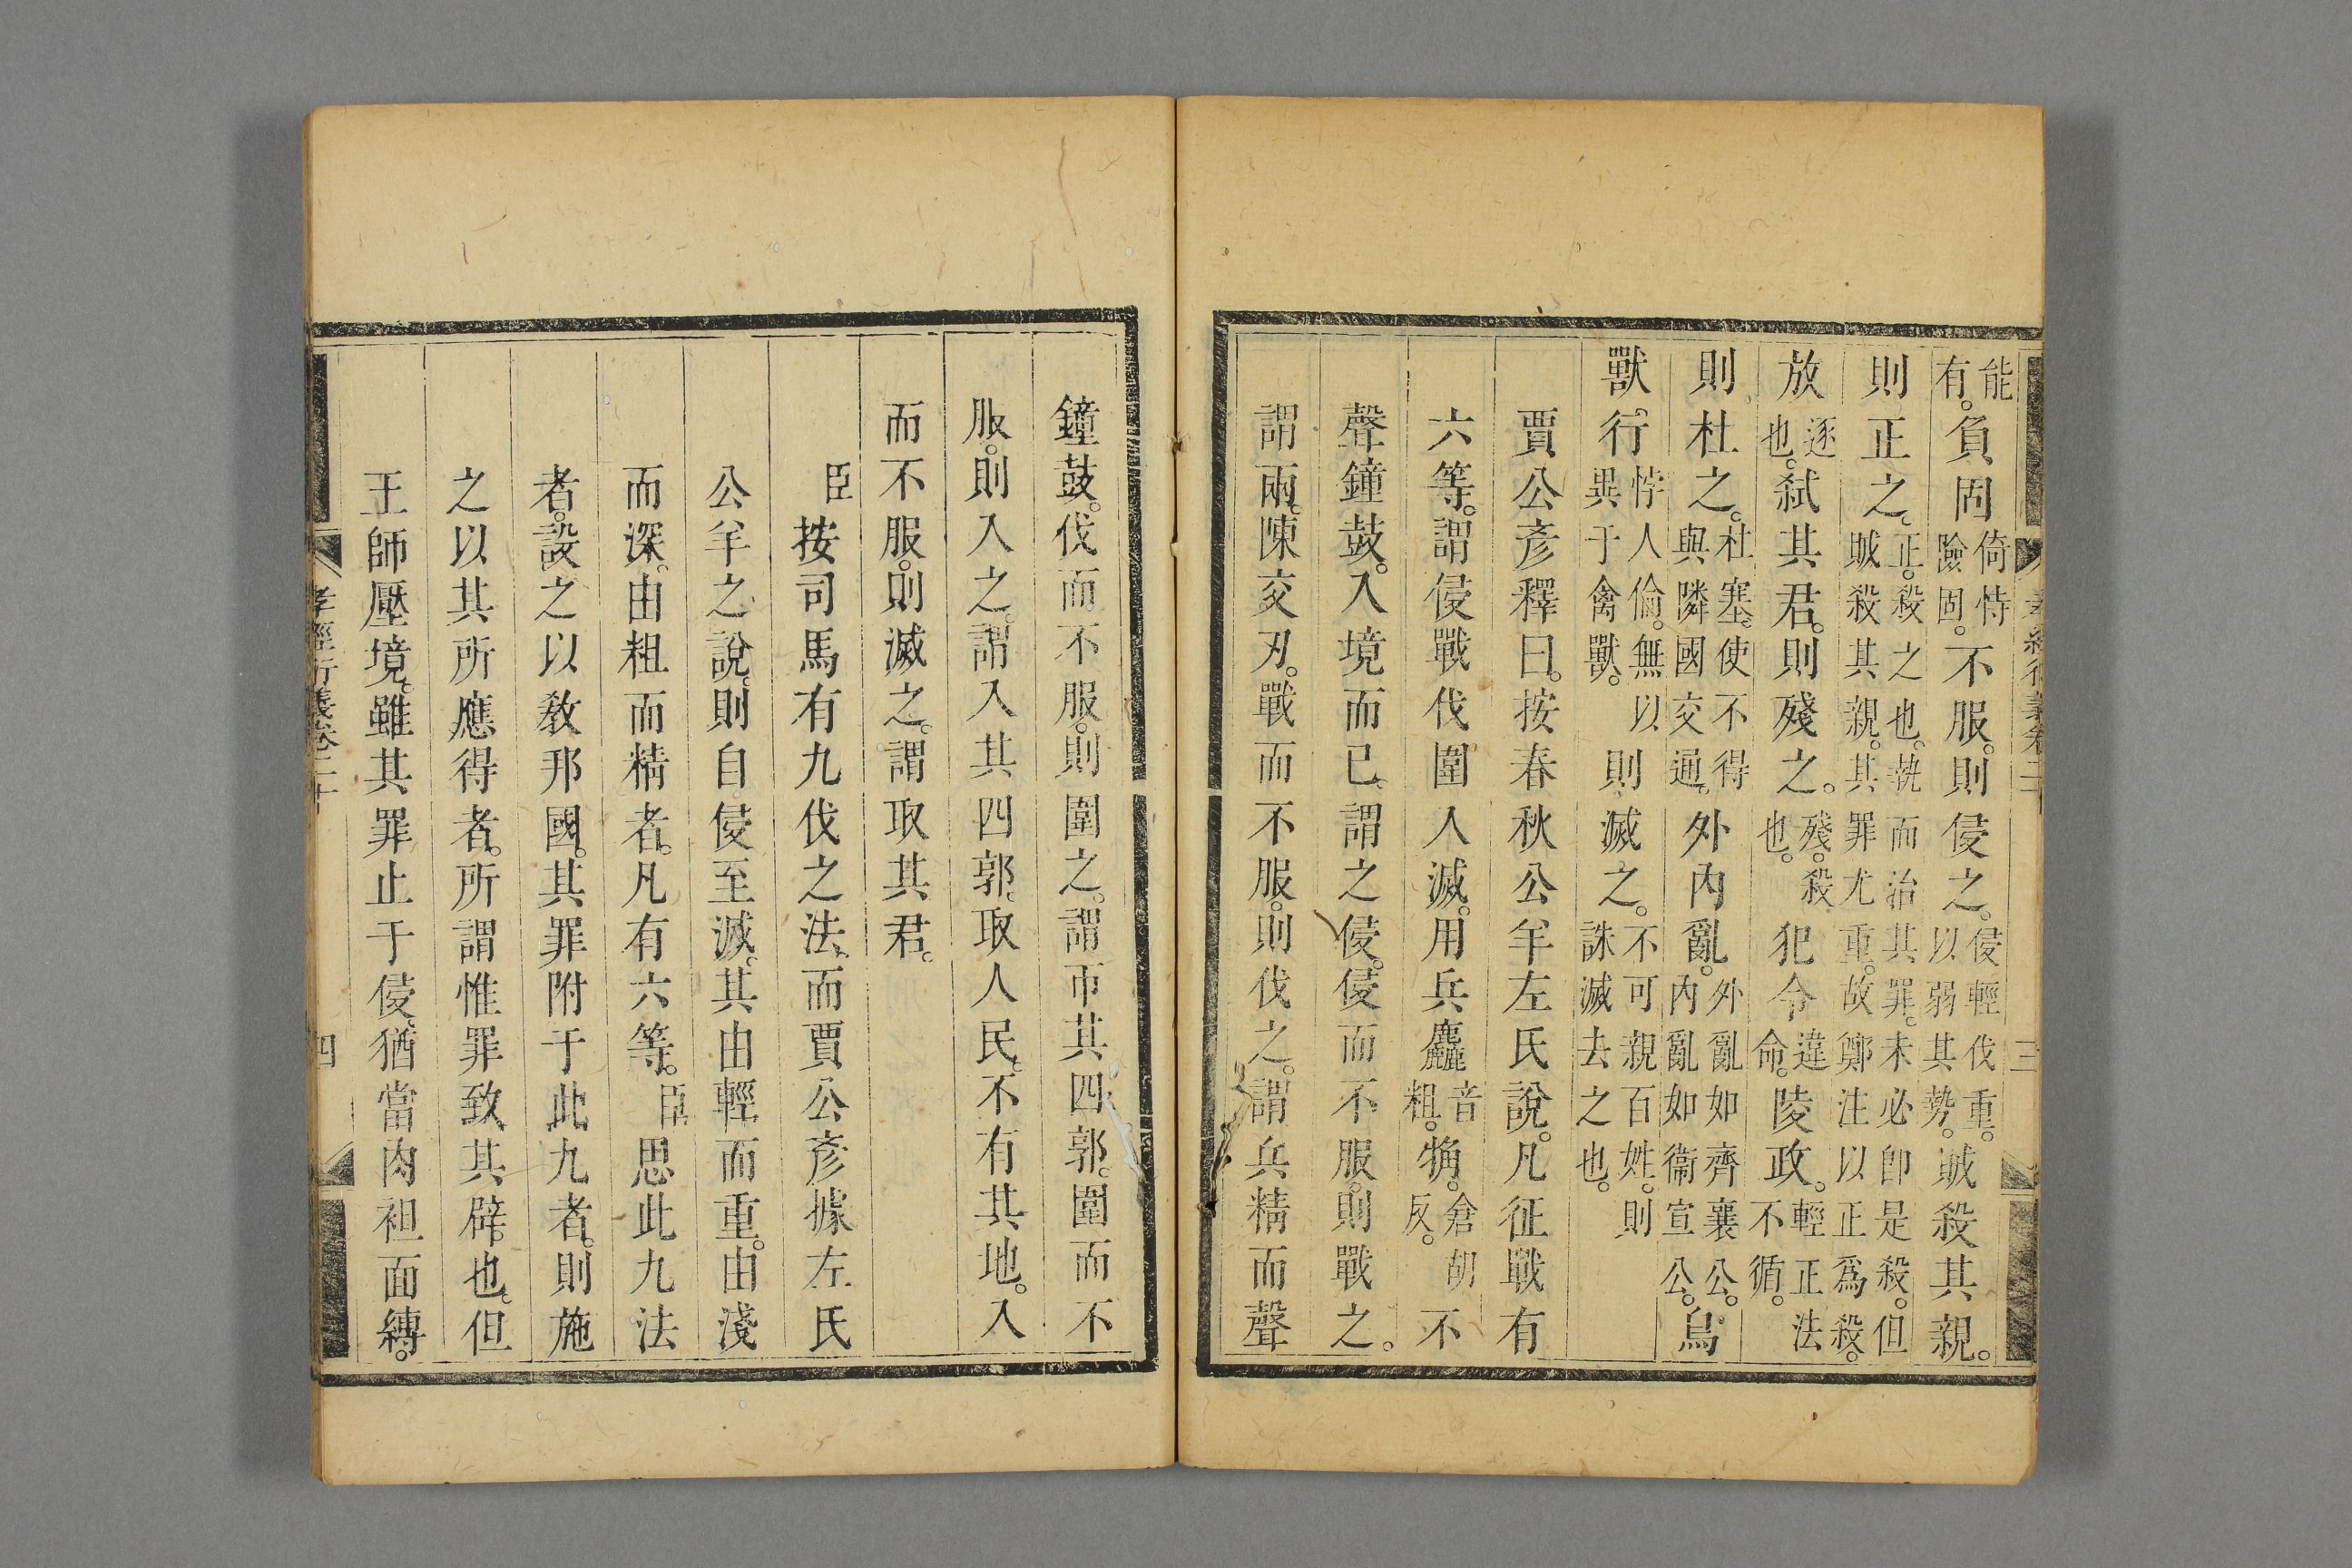 孝經衍義卷二十 三
能有。負固倚恃險固。不服。則侵之。侵輕伐重。以弱其勢。賊殺其親。
則正之。正。殺之也。執而治其罪。未必卽是殺。但賊殺其親。其罪尤重。故鄭注以正爲殺。
放逐也。弑其君。則殘之。殘。殺也。犯令違命。陵政。輕正法不循。
則杜之。杜塞。使不得與隣國交通。外內亂。外亂如齊襄公。內亂如衞宣公。鳥
獸。行悖人倫。無以異于禽獸。則滅之。不可親百姓。則誅滅去之也。
賈公彥釋曰。按春秋公羊左氏說。凡征戰有
六等。謂侵戰伐圍入滅。用兵麤音粗。觕。倉胡反。不
聲鐘鼓。入境而已。謂之侵。侵而不服。則戰之。
謂兩。陳交刃。戰而不服。則伐之。謂兵精而聲
鐘鼓。伐而不服。則圍之。謂帀其四郭。圍而不
服。則入之。謂入其四郭。取人民。不有其地。入
而不服。則滅之。謂取其君。
臣按司馬有九伐之法。而賈公彥據左氏
公羊之說。則自侵至滅。其由輕而重。由淺
而深。由粗而精者。凡有六等。臣思此九法
者。設之以敎邦國。其罪附于此九者。則施
之以其所應得者。所謂惟罪致其辟。也。但
王師壓境。雖其罪止于侵。猶當肉袒面縛。
孝經衍義卷二十 四